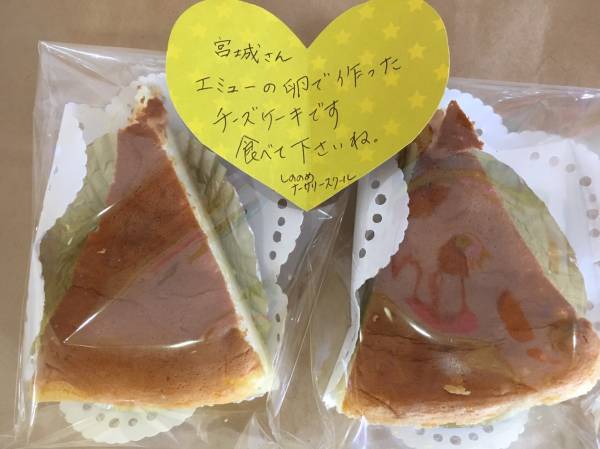 宮城さん
エミューの卵で作った
チーズケーキです
食べて下さいね。
しののめ
ナーサリースクール